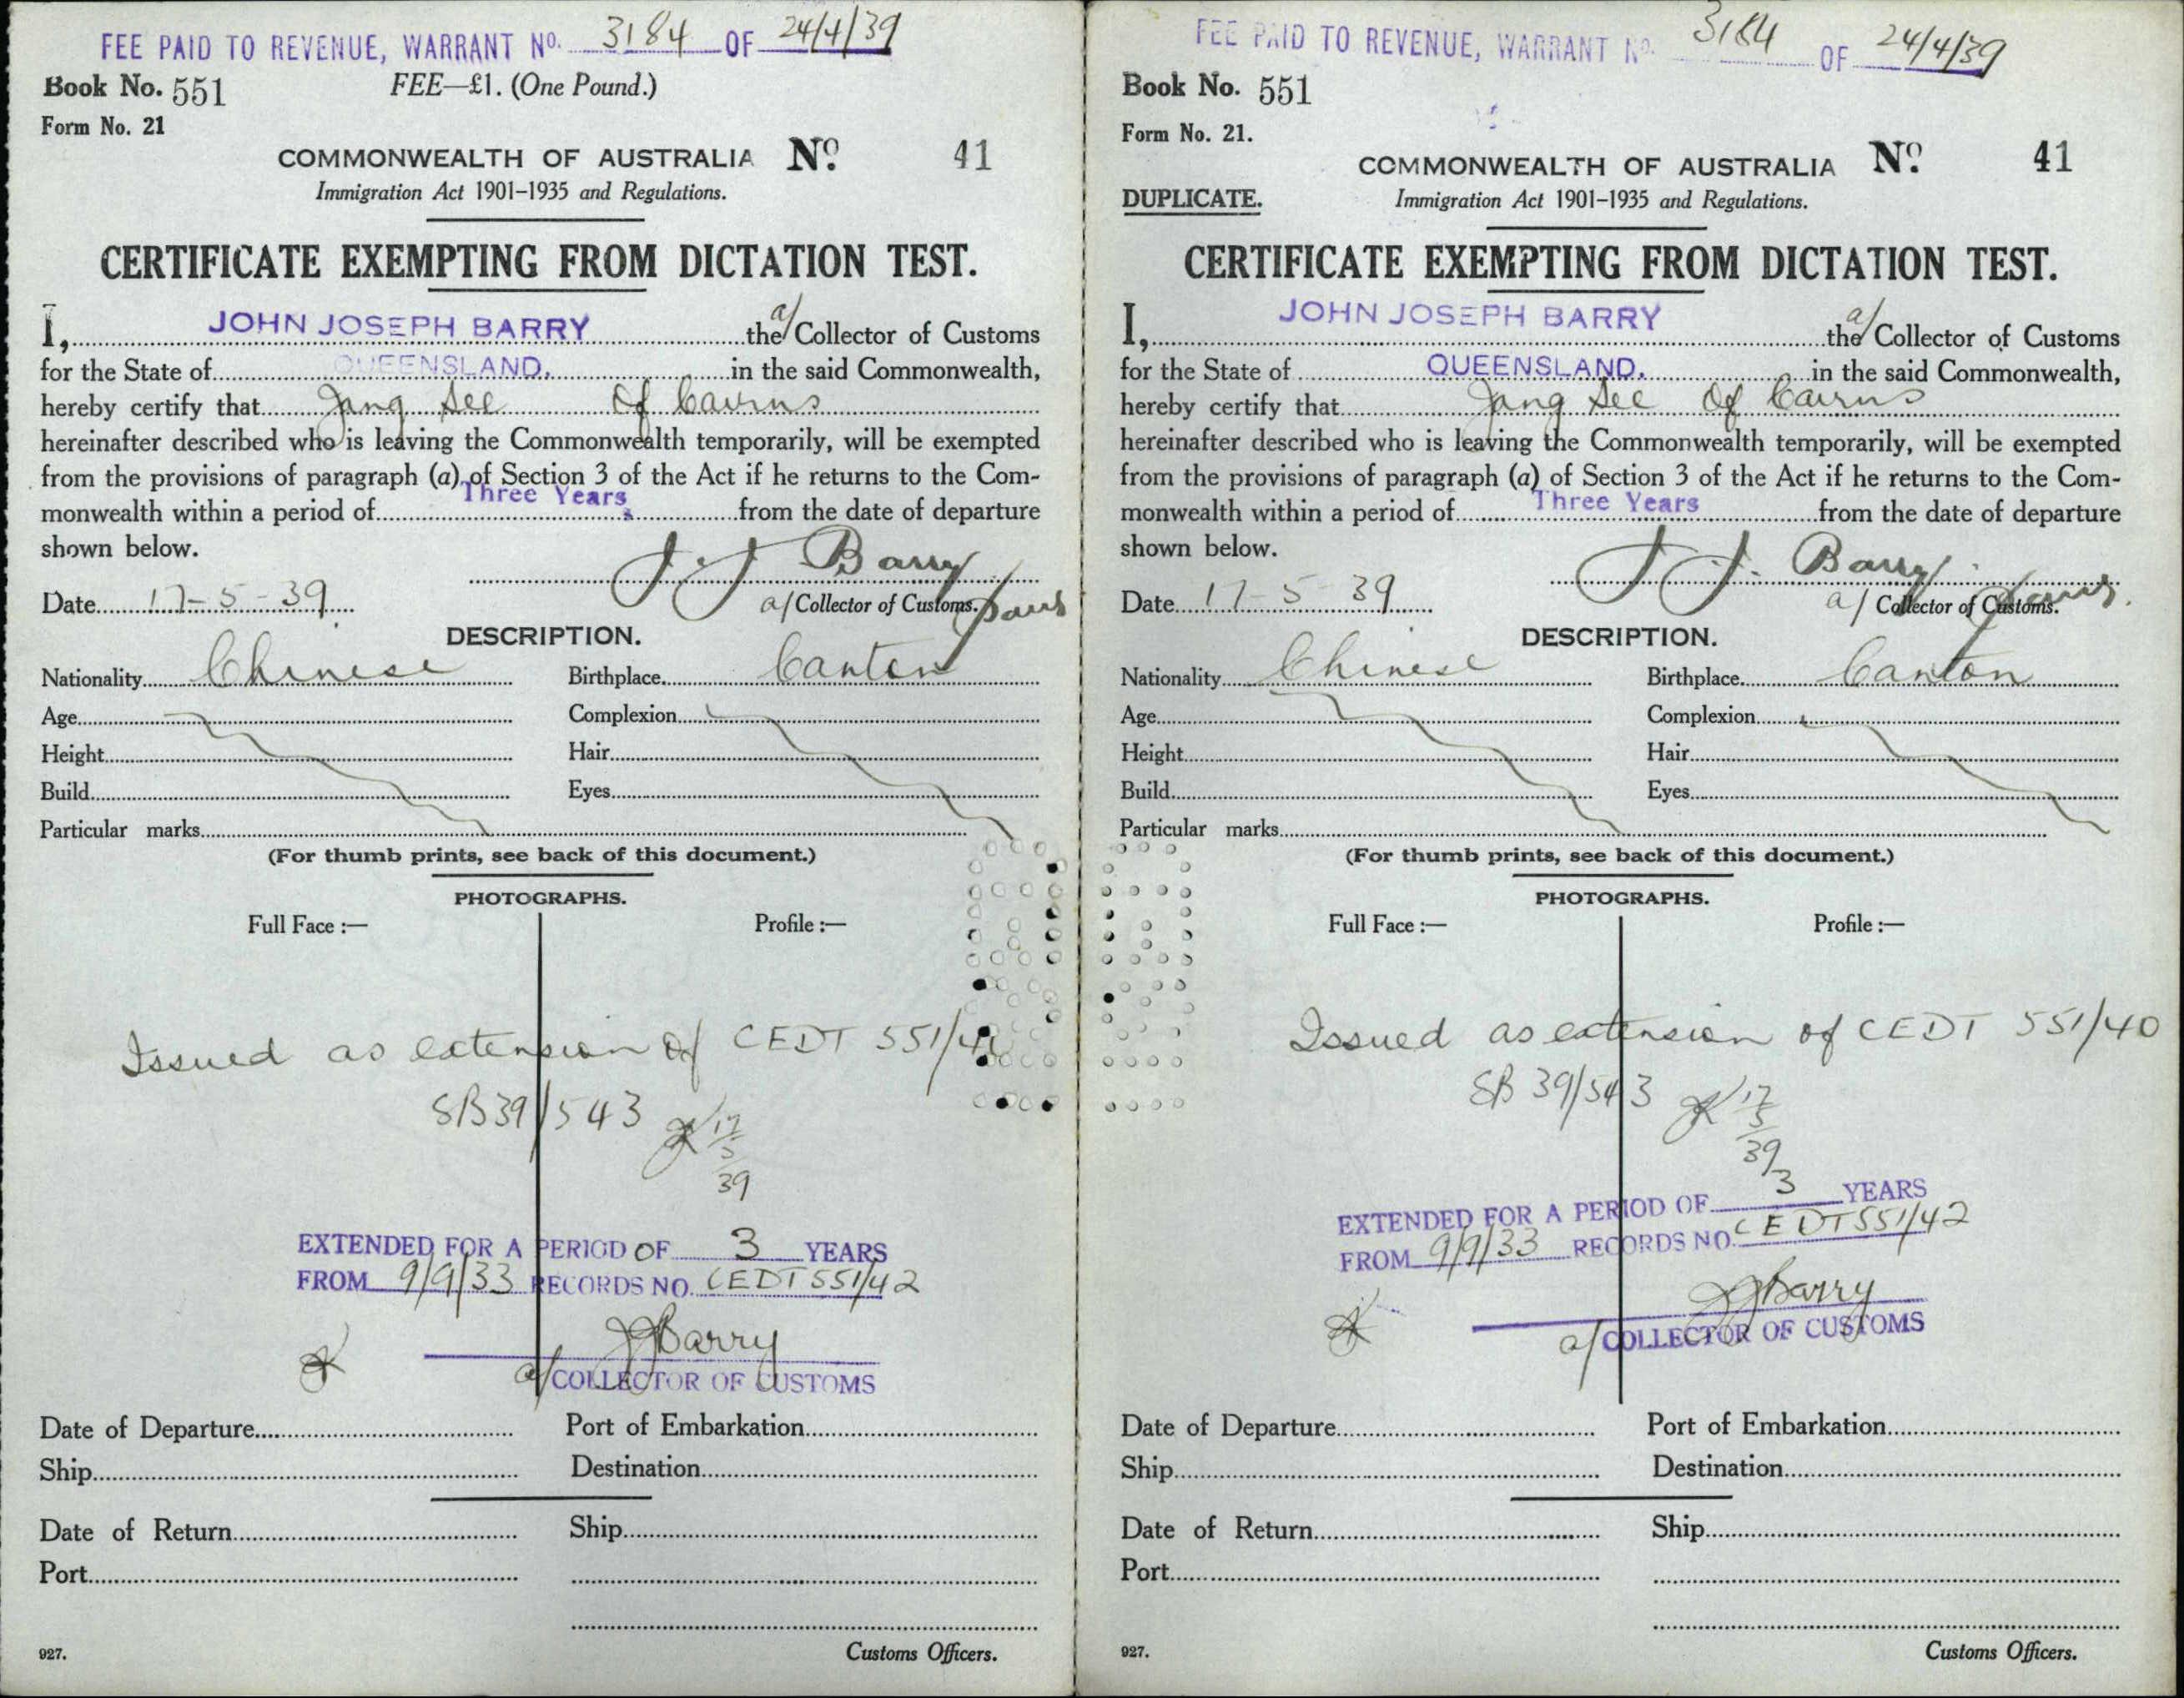 FEE PAID TO REVENUE, WARRANT No. 3184 OF 24/4/39
Book No. 551 FEE—£1. (One Pound.)
Form No. 21
COMMONWEALTH OF AUSTRALIA No. 41
Immigration Act 1901–1935 and Regulations.
CERTIFICATE EXEMPTING FROM DICTATION TEST.
I, JOHN JOSEPH BARRY the a/ Collector of Customs
for the State of QUEENSLAND. in the said Commonwealth,
hereby certify that Jang See Of Cairns
hereinafter described who is leaving the Commonwealth temporarily, will be exempted
from the provisions of paragraph (a) of Section 3 of the Act if he returns to the Com-
monwealth within a period of Three Years from the date of departure
shown below.
J. J. Barry
Date 17-5-39 a/ Collector of Customs.
DESCRIPTION.
Nationality Chinese Birthplace Canton
Age Complexion
Height Hair
Build Eyes
Particular marks
(For thumb prints, see back of this document.)
PHOTOGRAPHS.
Full Face :— Profile :—
Issued as extension of CEDT 551/40
SB39/543 17/5/39
EXTENDED FOR A PERIOD OF 3 YEARS
FROM 9/9/33 RECORDS NO. CEDT 551/42
JJBarry
a/ COLLECTOR OF CUSTOMS
Date of Departure Port of Embarkation
Ship Destination
Date of Return Ship
Port
927. Customs Officers.
FEE PAID TO REVENUE, WARRANT No. 3184 OF 24/4/39
Book No. 551
Form No. 21.
COMMONWEALTH OF AUSTRALIA No. 41
DUPLICATE. Immigration Act 1901–1935 and Regulations.
CERTIFICATE EXEMPTING FROM DICTATION TEST.
I, JOHN JOSEPH BARRY the a/ Collector of Customs
for the State of QUEENSLAND. in the said Commonwealth,
hereby certify that Jang See Of Cairns
hereinafter described who is leaving the Commonwealth temporarily, will be exempted
from the provisions of paragraph (a) of Section 3 of the Act if he returns to the Com-
monwealth within a period of Three Years from the date of departure
shown below.
J. J. Barry
Date 17-5-39 a/ Collector of Customs.
DESCRIPTION.
Nationality Chinese Birthplace Canton
Age Complexion
Height Hair
Build Eyes
Particular marks
(For thumb prints, see back of this document.)
PHOTOGRAPHS.
Full Face :— Profile :—
Issued as extension of CEDT 551/40
SB 39/543 17/5/39
EXTENDED FOR A PERIOD OF 3 YEARS
FROM 9/9/33 RECORDS NO. CEDT 551/42
JJBarry
a/ COLLECTOR OF CUSTOMS
Date of Departure Port of Embarkation
Ship Destination
Date of Return Ship
Port
927. Customs Officers.